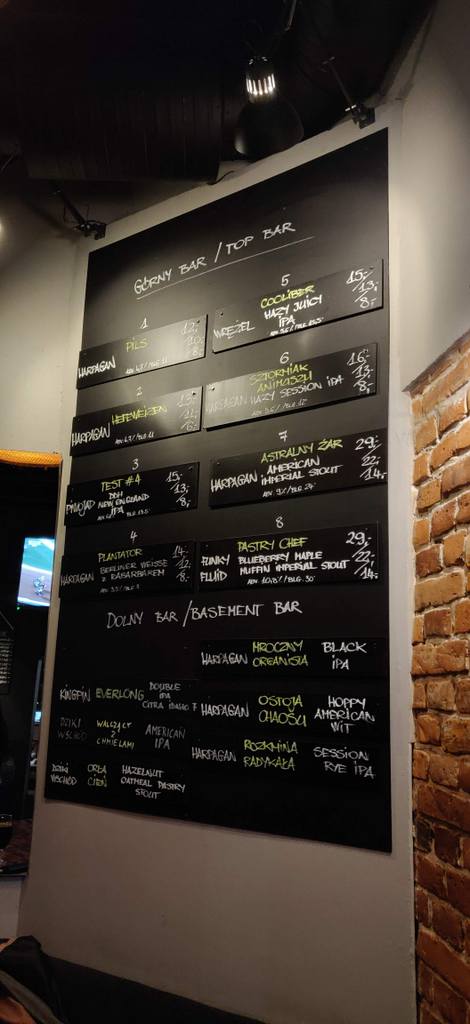 GÓRNY BAR / TOP BAR
1
HARPAGAN PILS 12,-
10,-
8,-
2
HARPAGAN HEFEWEIZEN
3
PIWOJAD TEST #4 15,-
DDH 13,-
NEW ENGLAND 8,-
IPA
4
HARPAGAN PLANTATOR 14,-
BERLINER WEISSE 12,-
Z RABARBAREM 8,-
5
WRĘŻEL COOLIBER 15,-
HAZY JUICY 13,-
IPA 8,-
6
HARPAGAN SZTORMIAK 16,-
ANIMUSZU 13,-
HAZY SESSION IPA 8,-
7
HARPAGAN ASTRALNY ŻAR 29,-
AMERICAN 22,-
IMPERIAL STOUT 14,-
8
FUNKY FLUID PASTRY CHEF 29,-
BLUEBERRY MAPLE 22,-
MUFFIN IMPERIAL STOUT 14,-
DOLNY BAR / BASEMENT BAR
KINGPIN EVERLONG DOUBLE
IPA
CITRA IDAHO 7
DZIKI WSCHÓD WALCZĄC Z CHMIELAMI AMERICAN
IPA
DZIKI WSCHÓD ORLA CIEŃ HAZELNUT
OATMEAL PASTRY
STOUT
HARPAGAN MROCZNY BLACK
IPA
HARPAGAN OSTOJA HOPPY
CHAOSU AMERICAN
WIT
HARPAGAN ROZKMINA SESSION
RADYKAŁA RYE IPA